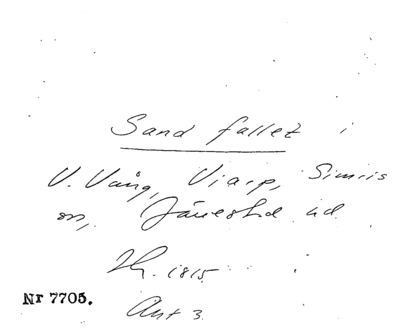 Sand fallet i
V. Vång, Viarp, Simris
sn, Järrestad äd.
Th. 1815
Nr 7705.
Ant 3.